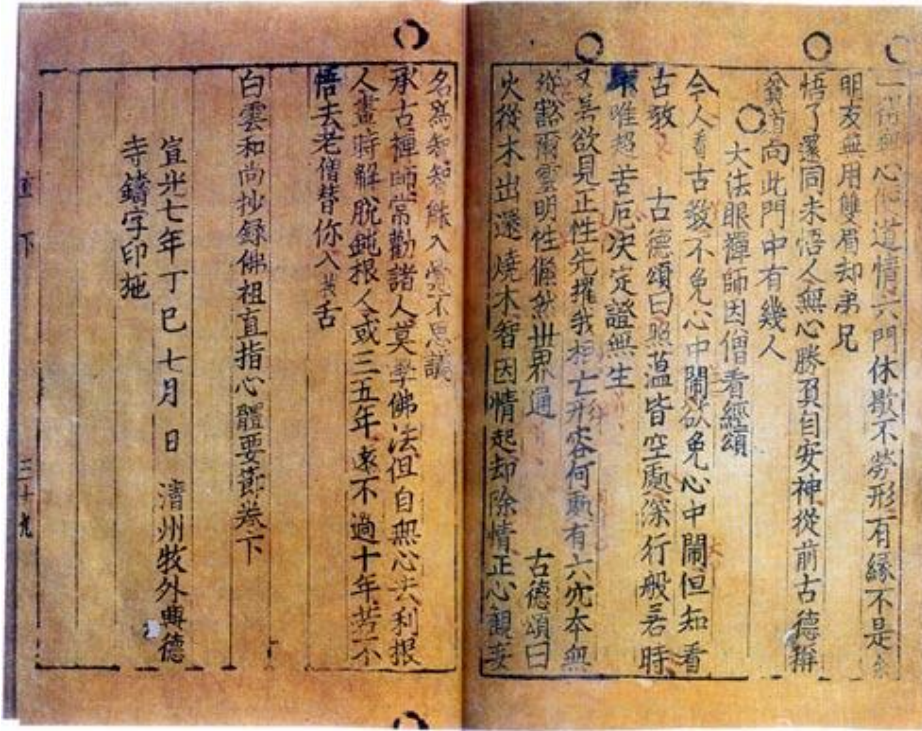 一心道情六門休歇不勞形有緣不是
明友無用雙眉却弟兄
悟了還同未悟人無心勝負自安神從前古德稱
貧道向此門中有幾人
大法眼禪師因僧看經頌
今人看古教不免心中鬧欲免心中鬧但知看
古教 古德頌曰照蘊皆空處深行般若時
唯超苦厄決定證無生
又若欲見正性先我相亡形容何處有六穴本無
縱豁爾雲明性倏然世界通 古德頌曰
火從木出還燒木智因情起却除情正心觀妄
名爲智智能入不思議
承古禪師常勸諸人莫學佛法但自無心去利根
人盡時解脫鈍根人或三五年遠不過十年若不
悟去老僧替你入舌
白雲和尚抄錄佛祖直指心體要節卷下
宣光七年丁巳七月 日 清州牧外興德
寺鑄字印施
直 下 三十九